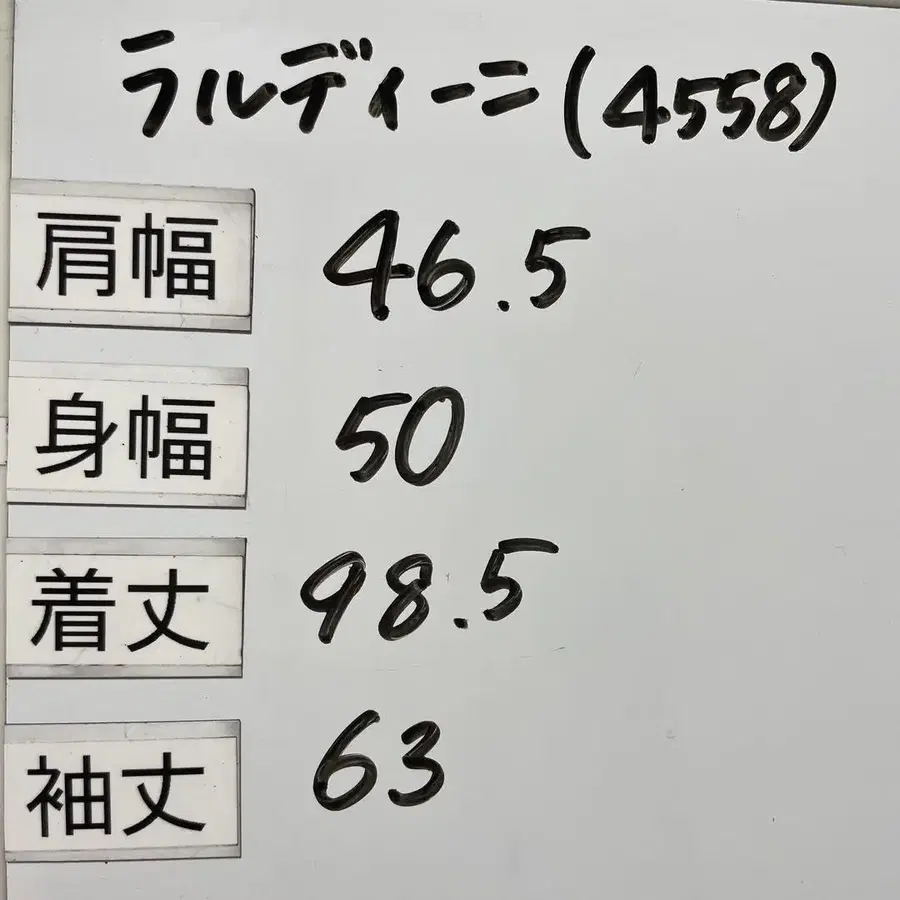 ラルディーニ(4558)
肩幅 46.5
身幅 50
着丈 98.5
袖丈 63